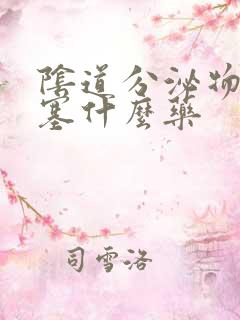 陰道分泌物
塞什麼藥
司雪洛